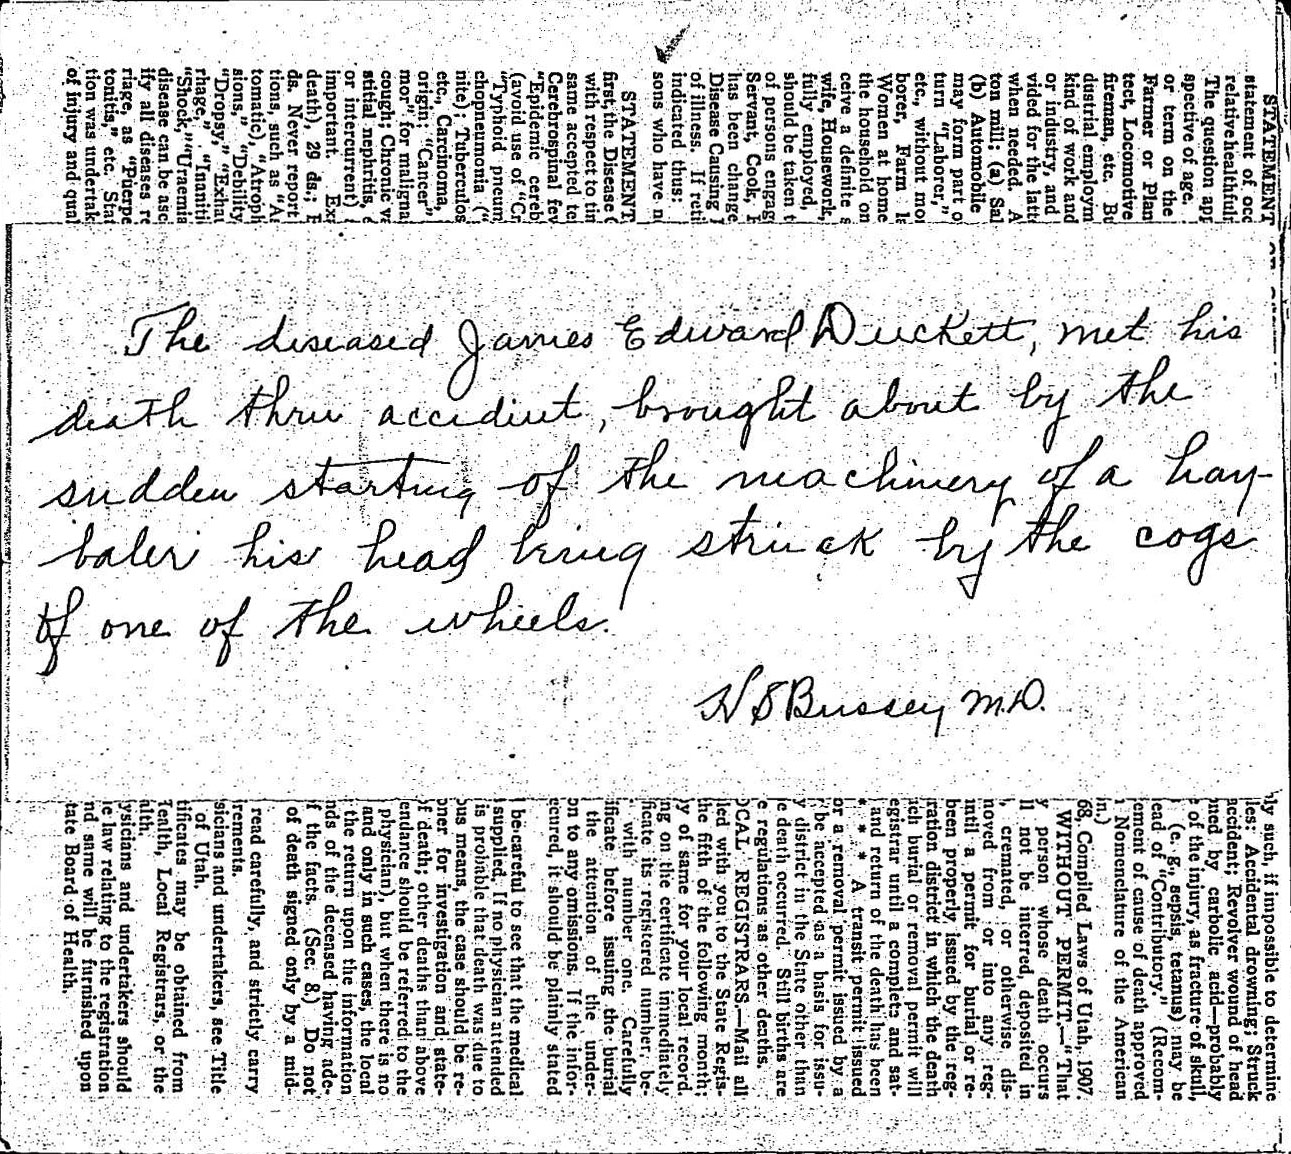 STATEMENT
statement of occ
relative healthfuln
The question app
spective of age.
or term on the
Farmer or Plan
tect, Locomotive
fireman, etc. Bu
dustrial employm
kind of work and
or industry, and
vided for the latt
when needed. A
ton mill; (a) Sal
(b) Automobile
may form part o
turn "Laborer,"
etc., without mo
borer, Farm la
Women at home
the household on
ceive a definite s
wife, Housework,
fully employed,
should be taken t
of persons engag
Servant, Cook, H
has been change
Disease Causing
of illness. If reti
indicated thus:
sons who have n
STATEMENT
first, the Disease
with respect to tim
same accepted te
Cerebrospinal fev
"Epidemic cereb
(avoid use of "Cr
"Typhoid pneum
chopneumonia ("
nite); Tuberculos
etc., Carcinoma,
origin; "Cancer"
mor" for maligna
cough; Chronic v
stitial nephritis, e
or intercurrent)
important. Ex
death), 29 ds.; B
ds. Never report
tions, such as "A
tomatic), "Atroph
sions," "Debility
"Dropsy," "Exhau
rhage," "Inaniti
"Shock," "Uraemia
disease can be asc
ify all diseases re
riage, as "Puerpe
tonitis," etc. Stat
tion was undertak
of injury and qual
The diseased James Edward Duckett, met his
death thru accident, brought about by the
sudden starting of the machinery of a hay-
baler his head being struck by the cogs
of one of the wheels.
H S Bussey M.D.
ly such, if impossible to determine
les: Accidental drowning; Struck
accident; Revolver wound of head
ned by carbolic acid—probably
of the injury, as fracture of skull,
(e. g., sepsis, tetanus) may be
ead of "Contributory." (Recom-
ement of cause of death approved
Nomenclature of the American
n.)
68, Compiled Laws of Utah, 1907.
WITHOUT PERMIT.—"That
y person whose death occurs
ll not be interred, deposited in
, cremated, or otherwise dis-
noved from or into any reg-
until a permit for burial or re-
been properly issued by the reg-
ration district in which the death
ch burial or removal permit will
egistrar until a complete and sat-
and return of the death has been
* * * A transit permit issued
or a removal permit issued by a
be accepted as a basis for issu-
y district in the State other than
e death occurred. Still births are
e regulations as other deaths.
OCAL REGISTRARS.—Mail all
led with you to the State Regis-
the fifth of the following month;
y of same for your local record.
ng on the certificate immediately
ficate its registered number, be-
with number one. Carefully
ificate before issuing the burial
the attention of the under-
on to any omissions. If the infor-
ecured, it should be plainly stated
be careful to see that the medical
supplied. If no physician attended
is probable that death was due to
ous means, the case should be re-
oner for investigation and state-
f death; other deaths than above
endance should be referred to the
physician), but when there is no
and only in such cases, the local
the return upon the information
nds of the deceased having ade-
f the facts. (Sec. 8.) Do not
of death signed only by a mid-
read carefully, and strictly carry
irements.
sicians and undertakers, see Title
of Utah.
tificates may be obtained from
Health, Local Registrars, or the
alth.
ysicians and undertakers should
e law relating to the registration
nd same will be furnished upon
tate Board of Health.